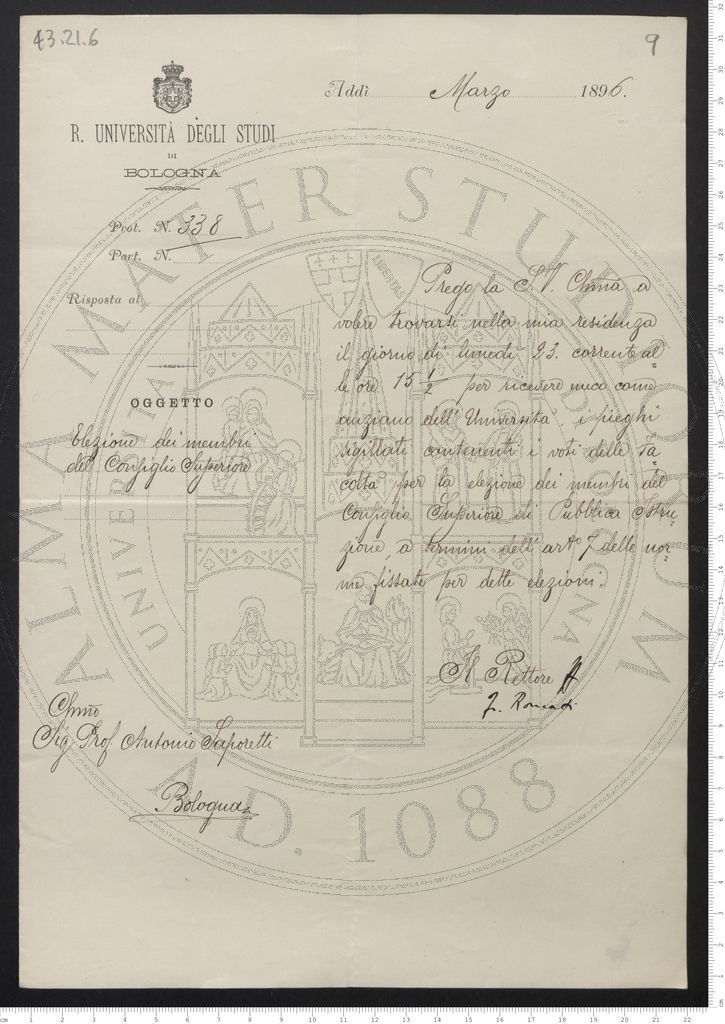 43.21.6
9
Addì Marzo 1896.
R. UNIVERSITÀ DEGLI STUDI
DI
BOLOGNA
Prot. N. 338
Part. N.
Risposta al
OGGETTO
Elezione dei membri
del Consiglio Superiore
Prego la S. V. Chma a
volere trovarsi nella mia residenza
il giorno di lunedì 23. corrente al-
le ore 15 1/2 per ricevere meco come
anziano dell'Università i pieghi
sigillati contenenti i voti delle Fa-
coltà per la elezione dei membri del
Consiglio Superiore di Pubblica Istru-
zione a termini dell'arto 7 delle nor-
me fissate per dette elezioni.
Il Rettore ff
Chmo
Sig Prof Antonio Saporetti
Bologna
ALMA MATER STUDIORUM
A.D. 1088
LIBERTAS